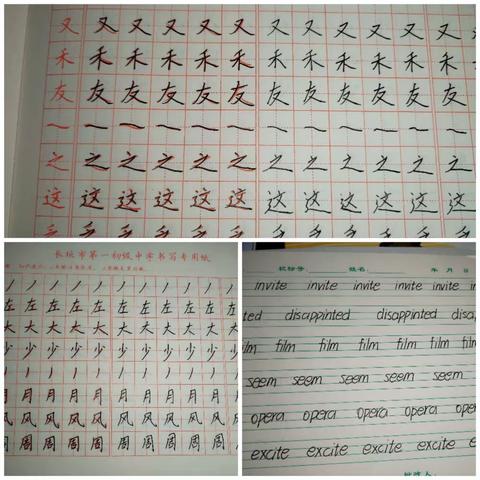 又 又 又 又 又 又 又 又 又 又 又 又
禾 禾 禾 禾 禾 禾 禾 禾 禾 禾 禾 禾 禾
友 友 友 友 友 友 友 友 友 友 友 友
一 一 一 一 一 一 一 一 一 一 一 一
之 之 之 之 之 之 之 之 之 之 之 之
这 这 这 这 这 这 这 这 这 这 这 这
长垣市第一初级中学书写专用纸
丿 丿 丿 丿 丿 丿 丿 丿 丿 丿
左 左 左 左 左 左 左 左 左 左
大 大 大 大 大 大 大 大 大 大
少 少 少 少 少 少 少 少 少 少
丿 丿 丿 丿 丿 丿 丿 丿 丿 丿
月 月 月 月 月 月 月 月 月 月
风 风 风 风 风 风 风 风 风 风
周 周 周 周 周 周 周 周 周 周
姓名 年 月 日
invite invite invite invite invite in
ted disappinted disappinted disap
film film film film film film
seem seem seem seem seem
opera opera opera opera oper
excite excite excite excite e